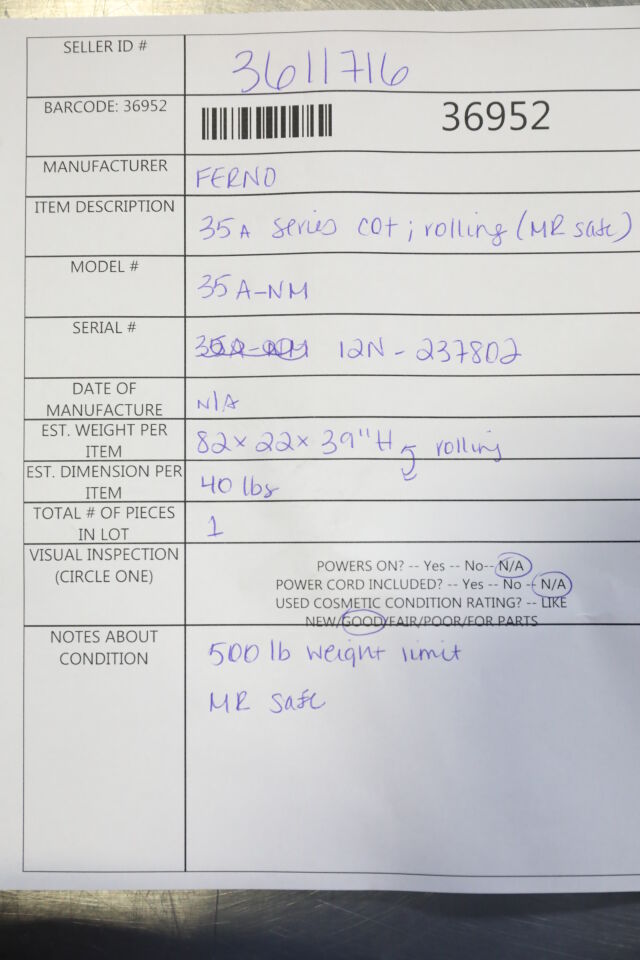 SELLER ID #
3611716
BARCODE: 36952
36952
MANUFACTURER
FERNO
ITEM DESCRIPTION
35A series cot; rolling (MR safe)
MODEL #
35A-NM
SERIAL #
35A-NM 12N-237802
DATE OF
MANUFACTURE
N/A
EST. WEIGHT PER
ITEM
82x22x39"H rolling
EST. DIMENSION PER
ITEM
40 lbs
TOTAL # OF PIECES
IN LOT
1
VISUAL INSPECTION
(CIRCLE ONE)
POWERS ON? -- Yes -- No-- N/A
POWER CORD INCLUDED? -- Yes -- No -- N/A
USED COSMETIC CONDITION RATING? -- LIKE
NEW/GOOD/FAIR/POOR/FOR PARTS
NOTES ABOUT
CONDITION
500 lb weight limit
MR safe